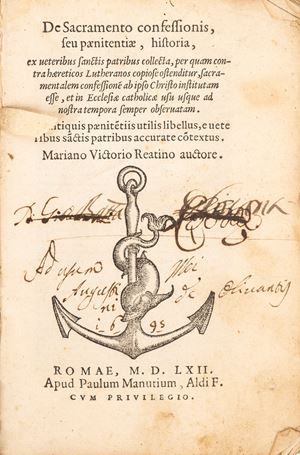 De Sacramento confessionis,
seu pænitentiæ, historia,
ex ueteribus sanctis patribus collecta, per quam con-
tra hæreticos Lutheranos copiose ostenditur, sacra-
mentalem confessionē ab ipso Christo institutam
esse, et in Ecclesia catholica usu usque ad
nostra tempora semper obseruatam.
antiquis pænitētiis utilis libellus, e uete
ribus sāctis patribus accurate cōtextus.
Mariano Victorio Reatino auctore.
Ad usum Mei
Augustini de Oliuantis
1695
ROMAE, M. D. LXII.
Apud Paulum Manutium, Aldi F.
CVM PRIVILEGIO.